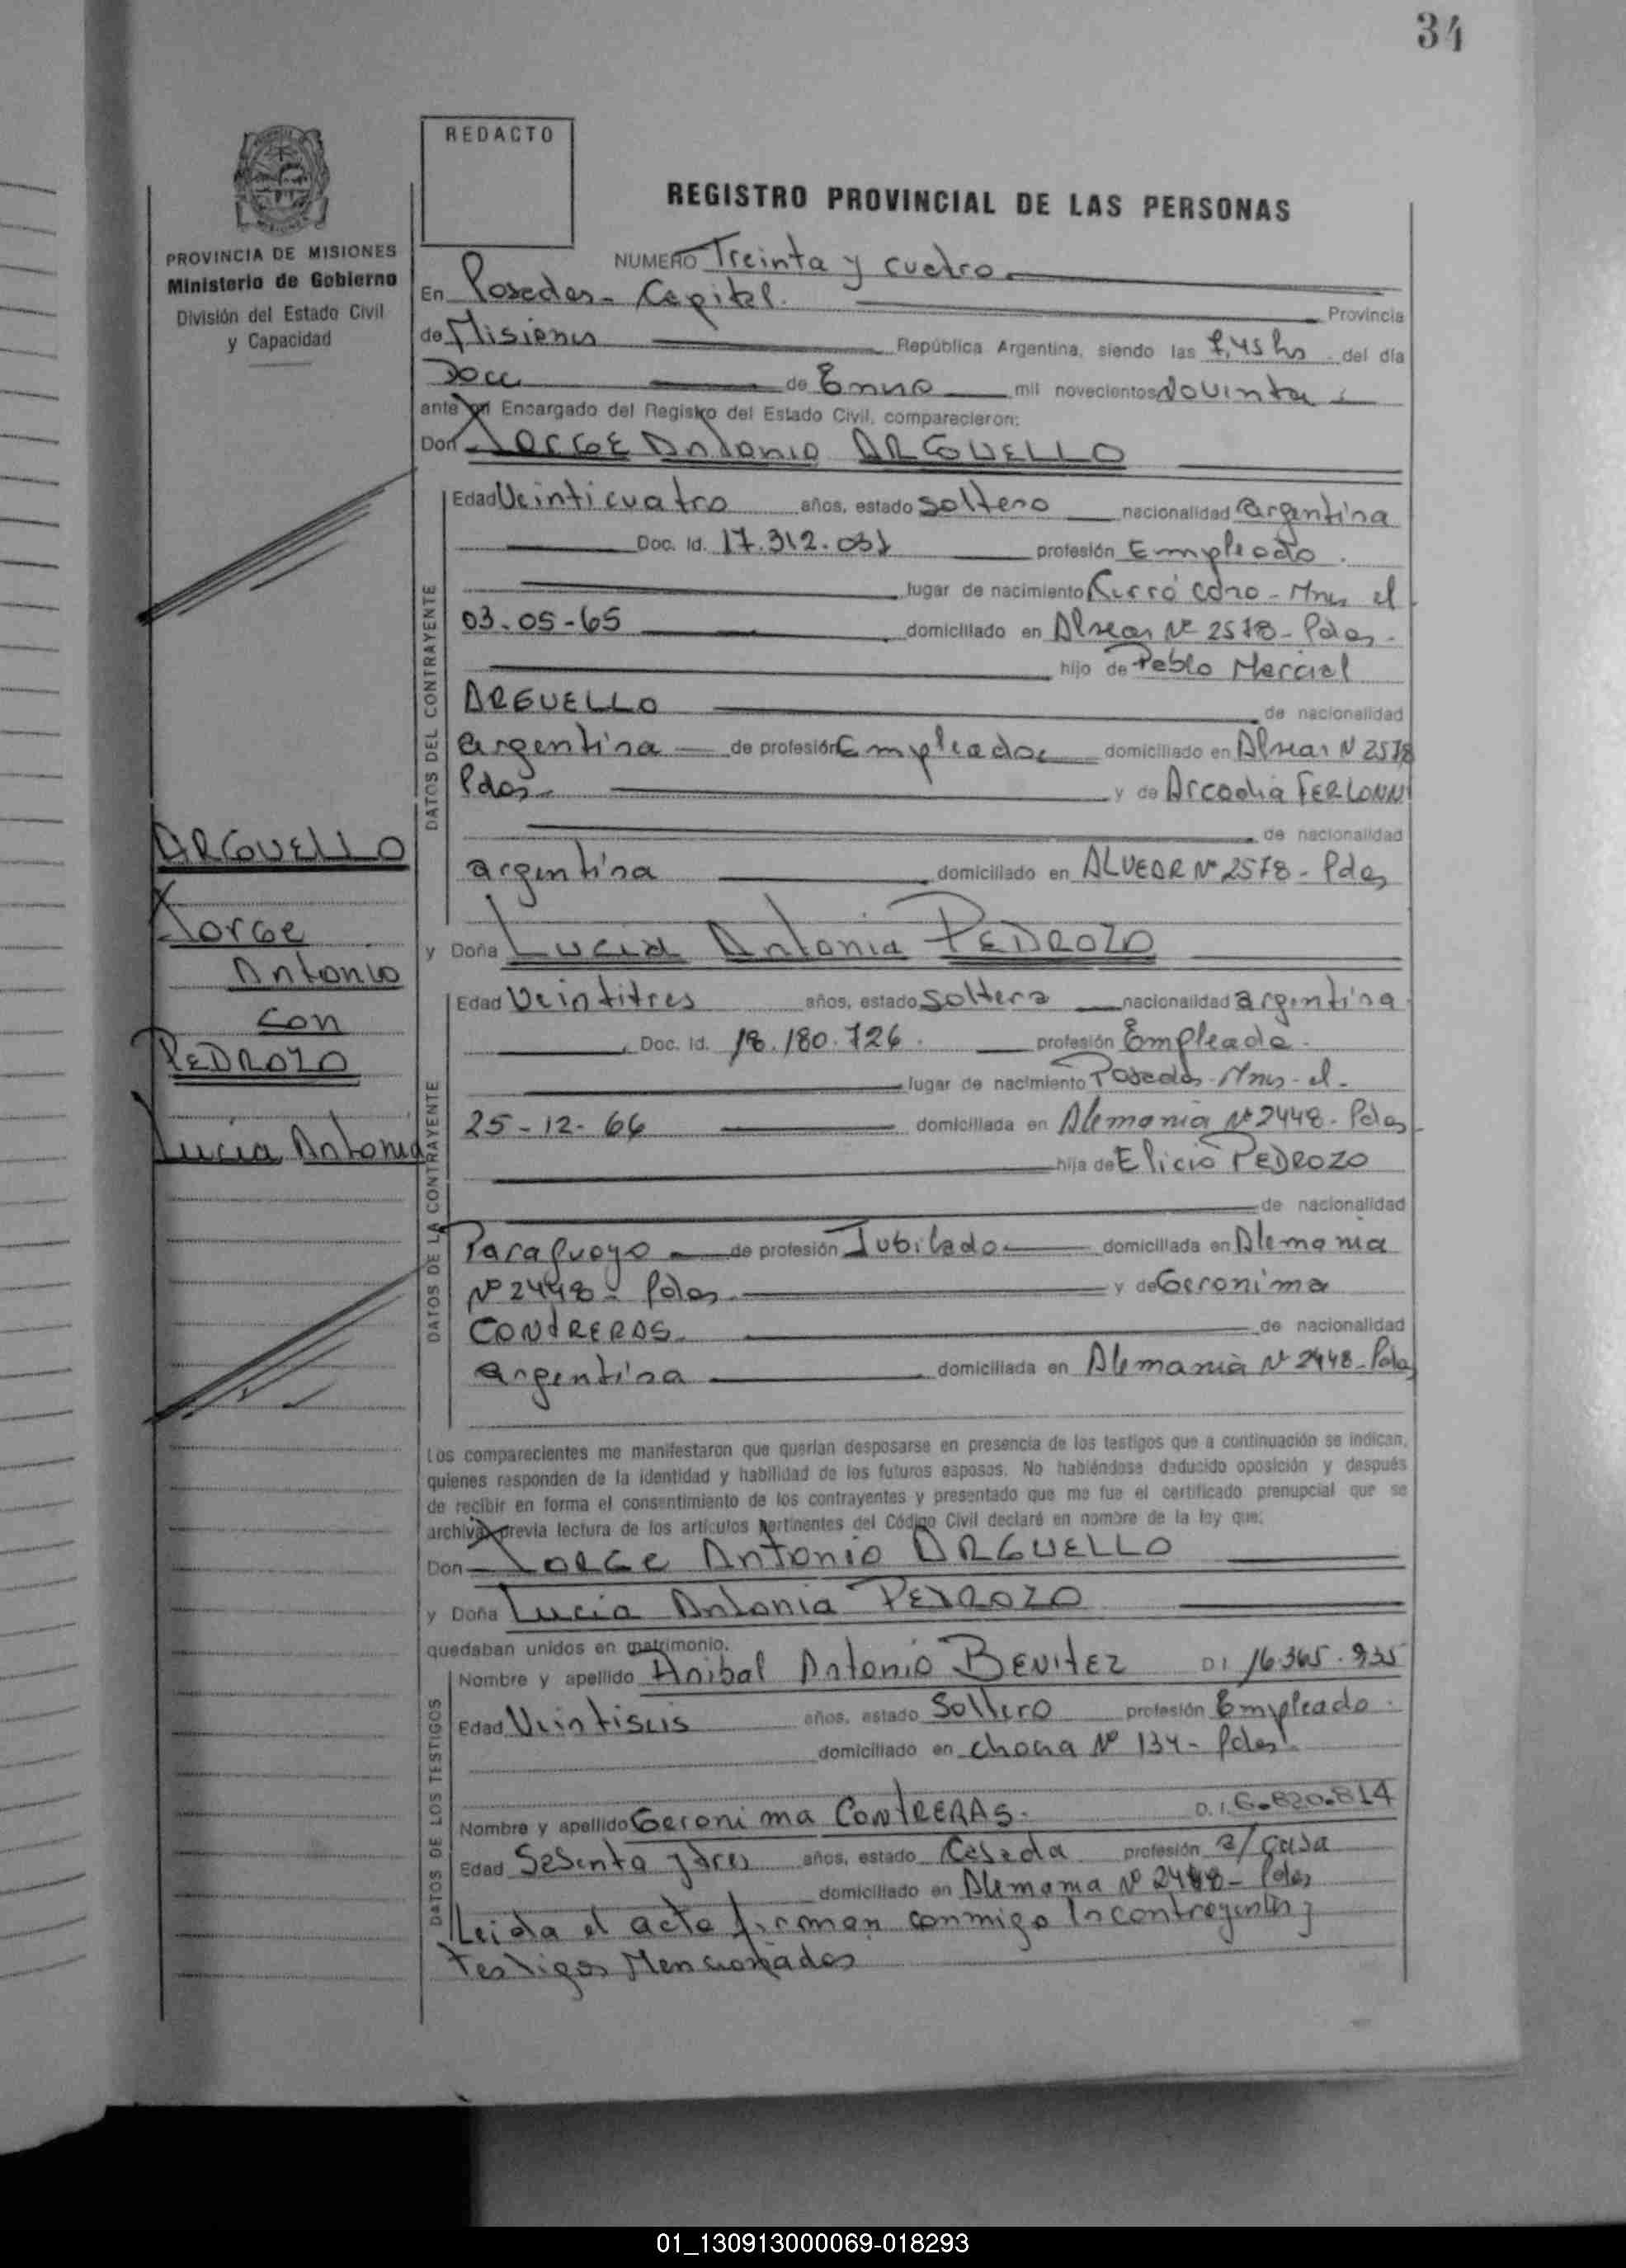 34
REDACTO
REGISTRO PROVINCIAL DE LAS PERSONAS
PROVINCIA DE MISIONES
Ministerio de Gobierno
División del Estado Civil
y Capacidad
NUMERO Treinta y cuatro
En Posadas - Capital. Provincia
de Misiones República Argentina, siendo las del día
Doce de Enero mil novecientos Noventa
ante mí Encargado del Registro del Estado Civil, comparecieron:
Don Jorge Antonio ARGUELLO
DATOS DEL CONTRAYENTE
Edad Veinticuatro años, estado Soltero nacionalidad argentina
Doc. Id. 17.312.031 profesión Empleado.
lugar de nacimiento Cerro Cora - Mnes el
03-05-65 domiciliado en Alvear Nº 2578 - Pdas -
hijo de Pablo Marcial
ARGUELLO de nacionalidad
argentina de profesión Empleado domiciliado en Alvear N 2578
Pdas - y de Arcadia
de nacionalidad
argentina domiciliado en ALVEAR Nº 2578 - Pdas
ARGUELLO
Jorge
Antonio
con
PEDROZO
Lucia Antonia
y Doña Lucia Antonia PEDROZO
DATOS DE LA CONTRAYENTE
Edad Veintitres años, estado Soltera nacionalidad argentina
Doc. Id. 18.180.726. profesión Empleada.
lugar de nacimiento Posadas - Mnes - el -
25-12-66 domiciliada en Alemania Nº 2448 - Pdas
hija de Elicio PEDROZO
de nacionalidad
Paraguayo de profesión Jubilado domiciliada en Alemania
Nº 2448 - Pdas y de Geronima
CONTRERAS. de nacionalidad
argentina domiciliada en Alemania Nº 2448 - Pdas
Los comparecientes me manifestaron que querían desposarse en presencia de los testigos que a continuación se indican,
quienes responden de la identidad y habilidad de los futuros esposos. No habiéndose deducido oposición y después
de recibir en forma el consentimiento de los contrayentes y presentado que me fue el certificado prenupcial que se
archiva previa lectura de los artículos pertinentes del Código Civil declaré en nombre de la ley que:
Don Jorge Antonio ARGUELLO
y Doña Lucia Antonia PEDROZO
quedaban unidos en matrimonio.
DATOS DE LOS TESTIGOS
Nombre y apellido Anibal Antonio BENITEZ DI 16365.935
Edad Veintiseis años, estado Soltero profesión Empleado.
domiciliado en Nº 134 - Pdas
Nombre y apellido Geronima CONTRERAS. D.I. 6.820.814
Edad Sesenta y tres años, estado Casada profesión a/ casa
domiciliado en Alemania Nº 2448 - Pdas
Leida el acta firman conmigo los contrayentes y
testigos Mencionados
01_130913000069-018293